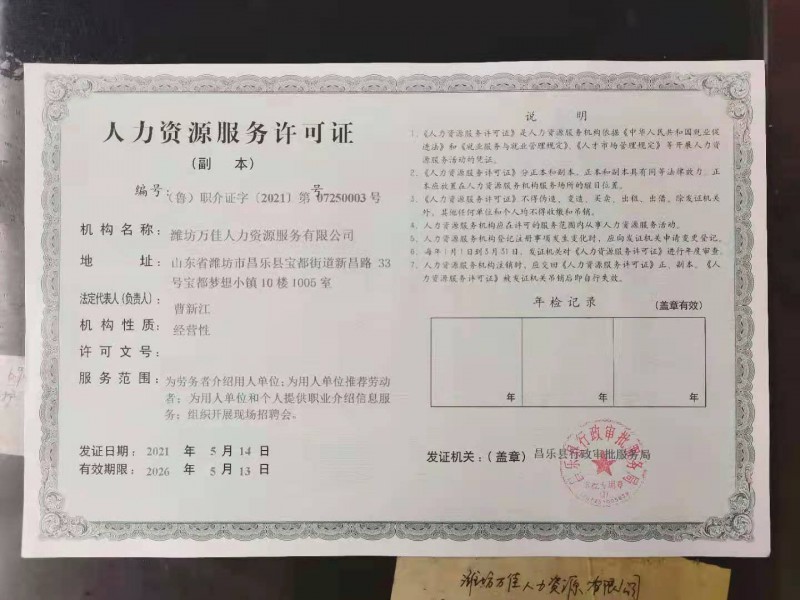 人力资源服务许可证
（副 本）
编号：（鲁）职介证字〔2021〕第 07250003 号
号
机构名称：潍坊万佳人力资源服务有限公司
地 址：山东省潍坊市昌乐县宝都街道新昌路 33
号宝都梦想小镇 10 楼 1005 室
法定代表人(负责人)：曹新江
机构性质：经营性
许可文号：
服务范围：为劳务者介绍用人单位；为用人单位推荐劳动
者；为用人单位和个人提供职业介绍信息服
务；组织开展现场招聘会。
发证日期：2021 年 5 月 14 日
有效期限：2026 年 5 月 13 日
说 明
1、《人力资源服务许可证》是人力资源服务机构依据《中华人民共和国就业促
进法》和《就业服务与就业管理规定》、《人才市场管理规定》等开展人力资
源服务活动的凭证。
2、《人力资源服务许可证》分正本和副本。正本和副本具有同等法律效力。正
本应放置在人力资源服务机构服务场所的醒目位置。
3、《人力资源服务许可证》不得伪造、变造、买卖、出租、出借，除发证机关
外，其他任何单位和个人均不得收缴和吊销。
4、人力资源服务机构应在许可的服务范围内从事人力资源服务活动。
5、人力资源服务机构登记注册事项发生变化时，应向发证机关申请变更登记。
6、每年1月1日到3月31日，发证机关对《人力资源服务许可证》进行年度审查。
7、人力资源服务机构注销时，应交回《人力资源服务许可证》正、副本。《人
力资源服务许可证》被发证机关吊销后即自行失效。
年检记录
（盖章有效）
年
年
年
发证机关：（盖章）昌乐县行政审批服务局
昌乐县行政审批服务局
潍坊万佳人力资源有限公司